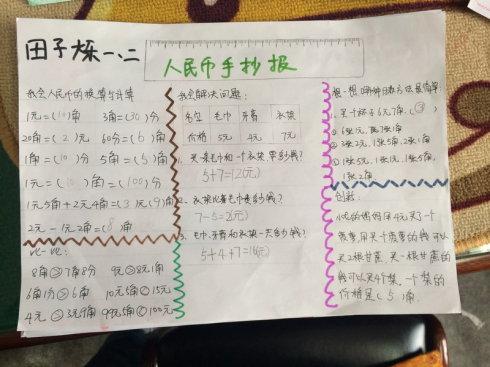 田子栎一、二
人民币手抄报
我会人民币的换算与计算
1元=(10)角 3角=(30)分
20角=(2)元 60分=(6)角
1角=(10)分 5角=(5)角
1元=(10)角=(100)分
1元5角+2元4角=(3)元(9)角
2元-1元2角=(8)角
比一比:
8角>7角8分 9元>8元1角
6角1分>6角 10元5角<15元
4元>3元9角 99元5角<100元
我会解决问题:
名位 毛巾 牙膏 衣袋
价格 5元 4元 7元
1. 买一条毛巾和一个衣袋要多少钱?
5+7=12(元)
2. 衣袋比毛巾贵多少钱?
7-5=2(元)
3. 毛巾、牙膏和衣袋一共多少钱?
5+4+7=16(元)
想一想哪种付款方法最简单
1. 买一个杯子6元7角。(③)
① 6张1元,7张1角
② 3张2元,1张5角,2张1角
③ 1张5元,1张1元,1张5角,
1张2角
创新:
小明的妈妈用4元买1个
菠萝,用买一个菠萝的钱可以
买2根甘蔗,买一根甘蔗的
钱可以买4个梨。一个梨的
价格是(5)角。